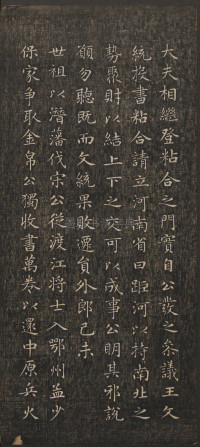 大夫相繼登粘合之門實自公發之叅議王文
統投書粘合請立河南省曰距河以持南北之
勢聚財以結上下之交可以成事公明其邪說
願勿聽既而文統果敗遷員外郎己未
世祖以潛藩伐宋公從渡江將士入鄂州益少
保家爭取金帛公獨收書萬卷以還中原兵火